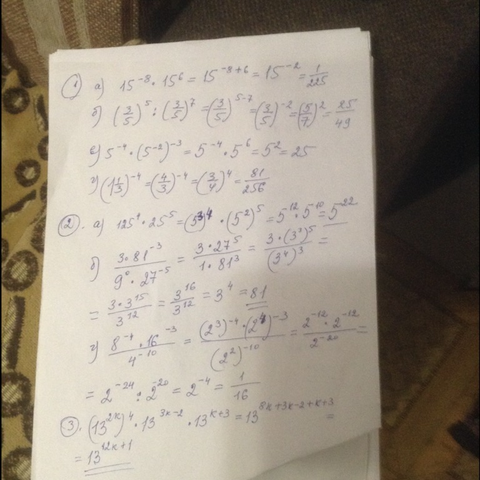 ① а) 15⁻⁸ · 15⁶ = 15⁻⁸⁺⁶ = 15⁻² = 1/225
б) (3/5)⁵ : (3/5)⁷ = (3/5)⁵⁻⁷ = (3/5)⁻² = (5/7)² = 25/49
в) 5⁻⁴ · (5⁻²)⁻³ = 5⁻⁴ · 5⁶ = 5² = 25
г) (1 1/3)⁻⁴ = (4/3)⁻⁴ = (3/4)⁴ = 81/256
②. а) · 25⁵ = · (5²)⁵ = 5⁻¹² · 5⁻¹⁰ = 5⁻²²
б) 3 · 81⁻³ / 9⁰ · 27⁻⁵ = 3 · 27⁵ / 1 · 81³ = 3 · (3³)⁵ / (3⁴)³ =
= 3 · 3¹⁵ / 3¹² = 3¹⁶ / 3¹² = 3⁴ = 81
8⁻⁴ · 16⁻³ / 4⁻¹⁰ = (2³)⁻⁴ · (2⁴)⁻³ / (2²)⁻¹⁰ = 2⁻¹² · 2⁻¹² / 2⁻²⁰ =
= 2⁻²⁴ : 2⁻²⁰ = 2⁻⁴ = 1/16
③. (13²ᵏ)⁴ · 13³ᵏ⁻² · 13ᵏ⁺³ = 13⁸ᵏ⁺³ᵏ⁻²⁺ᵏ⁺³ =
= 13¹²ᵏ⁺¹